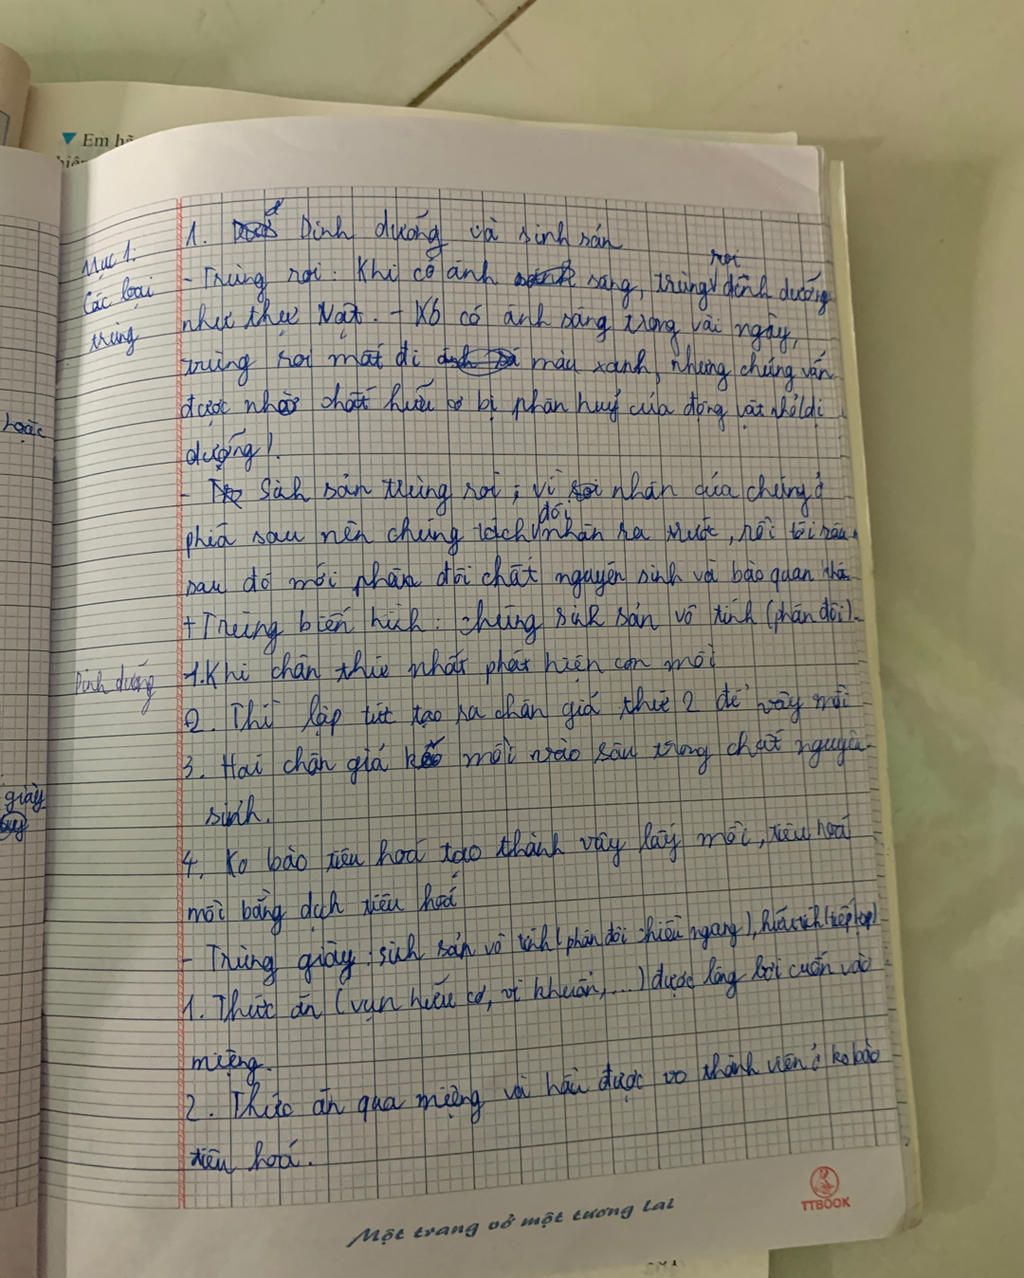 Em hã
hiên
Mục 1.
Các loại
trùng
1. Dinh dưỡng và sinh sản
- Trùng roi: Khi có ánh sáng, trùng roi dinh dưỡng
như thực vật. - Kb có ánh sáng trong vài ngày,
trùng roi mất đi màu xanh, nhưng chúng vẫn
được nhờ chất hữu cơ bị phân huỷ của động vật nhỏ(dị
dưỡng).
- Sinh sản trùng roi; vì nhân của chúng ở
phía sau nên chúng tách đôi nhân ra trước, rồi tới
sau đó mới phân đôi chất nguyên sinh và bào quan
+ Trùng biến hình: chúng sinh sản vô tính (phân đôi).
Dinh dưỡng
1. Khi chân thứ nhất phát hiện con mồi
2. Thì lập tức tạo ra chân giả thứ 2 để vây mồi
3. Hai chân giả kéo mồi vào sâu trong chất nguyên
sinh.
4. Ko bào tiêu hoá tạo thành vây lấy mồi, tiêu hoá
mồi bằng dịch tiêu hoá
- Trùng giày: sinh sản vô tính (phân đôi chiều ngang), hữu tính (tiếp hợp)
1. Thức ăn (vụn hữu cơ, vi khuẩn, ...) được lông bơi cuốn vào
miệng.
2. Thức ăn qua miệng và hầu được vo thành viên ở ko bào
tiêu hoá.
hoặc
giày
Một trang vở một tương lai
TTBOOK